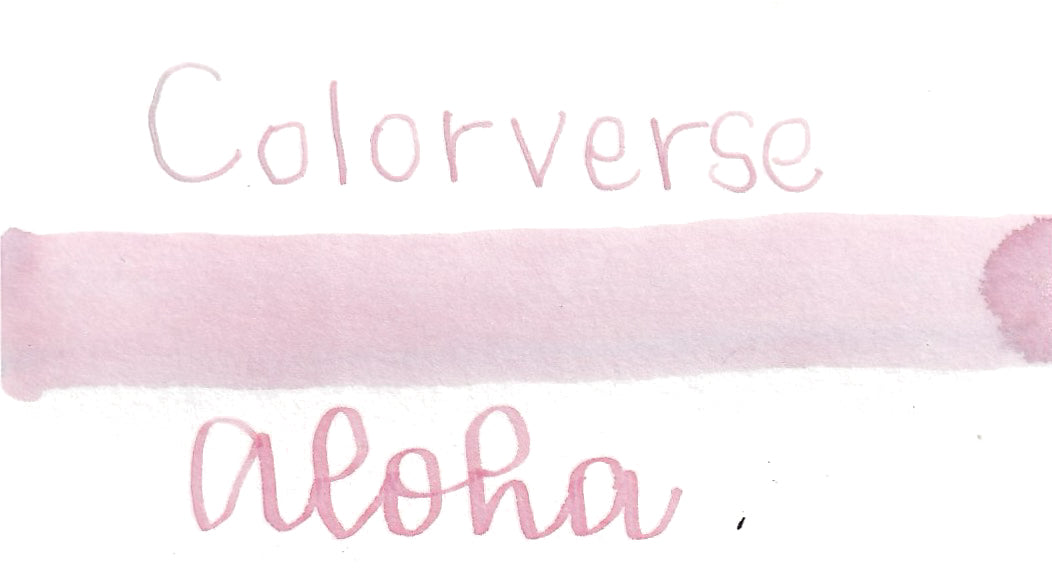 Colorverse
Aloha